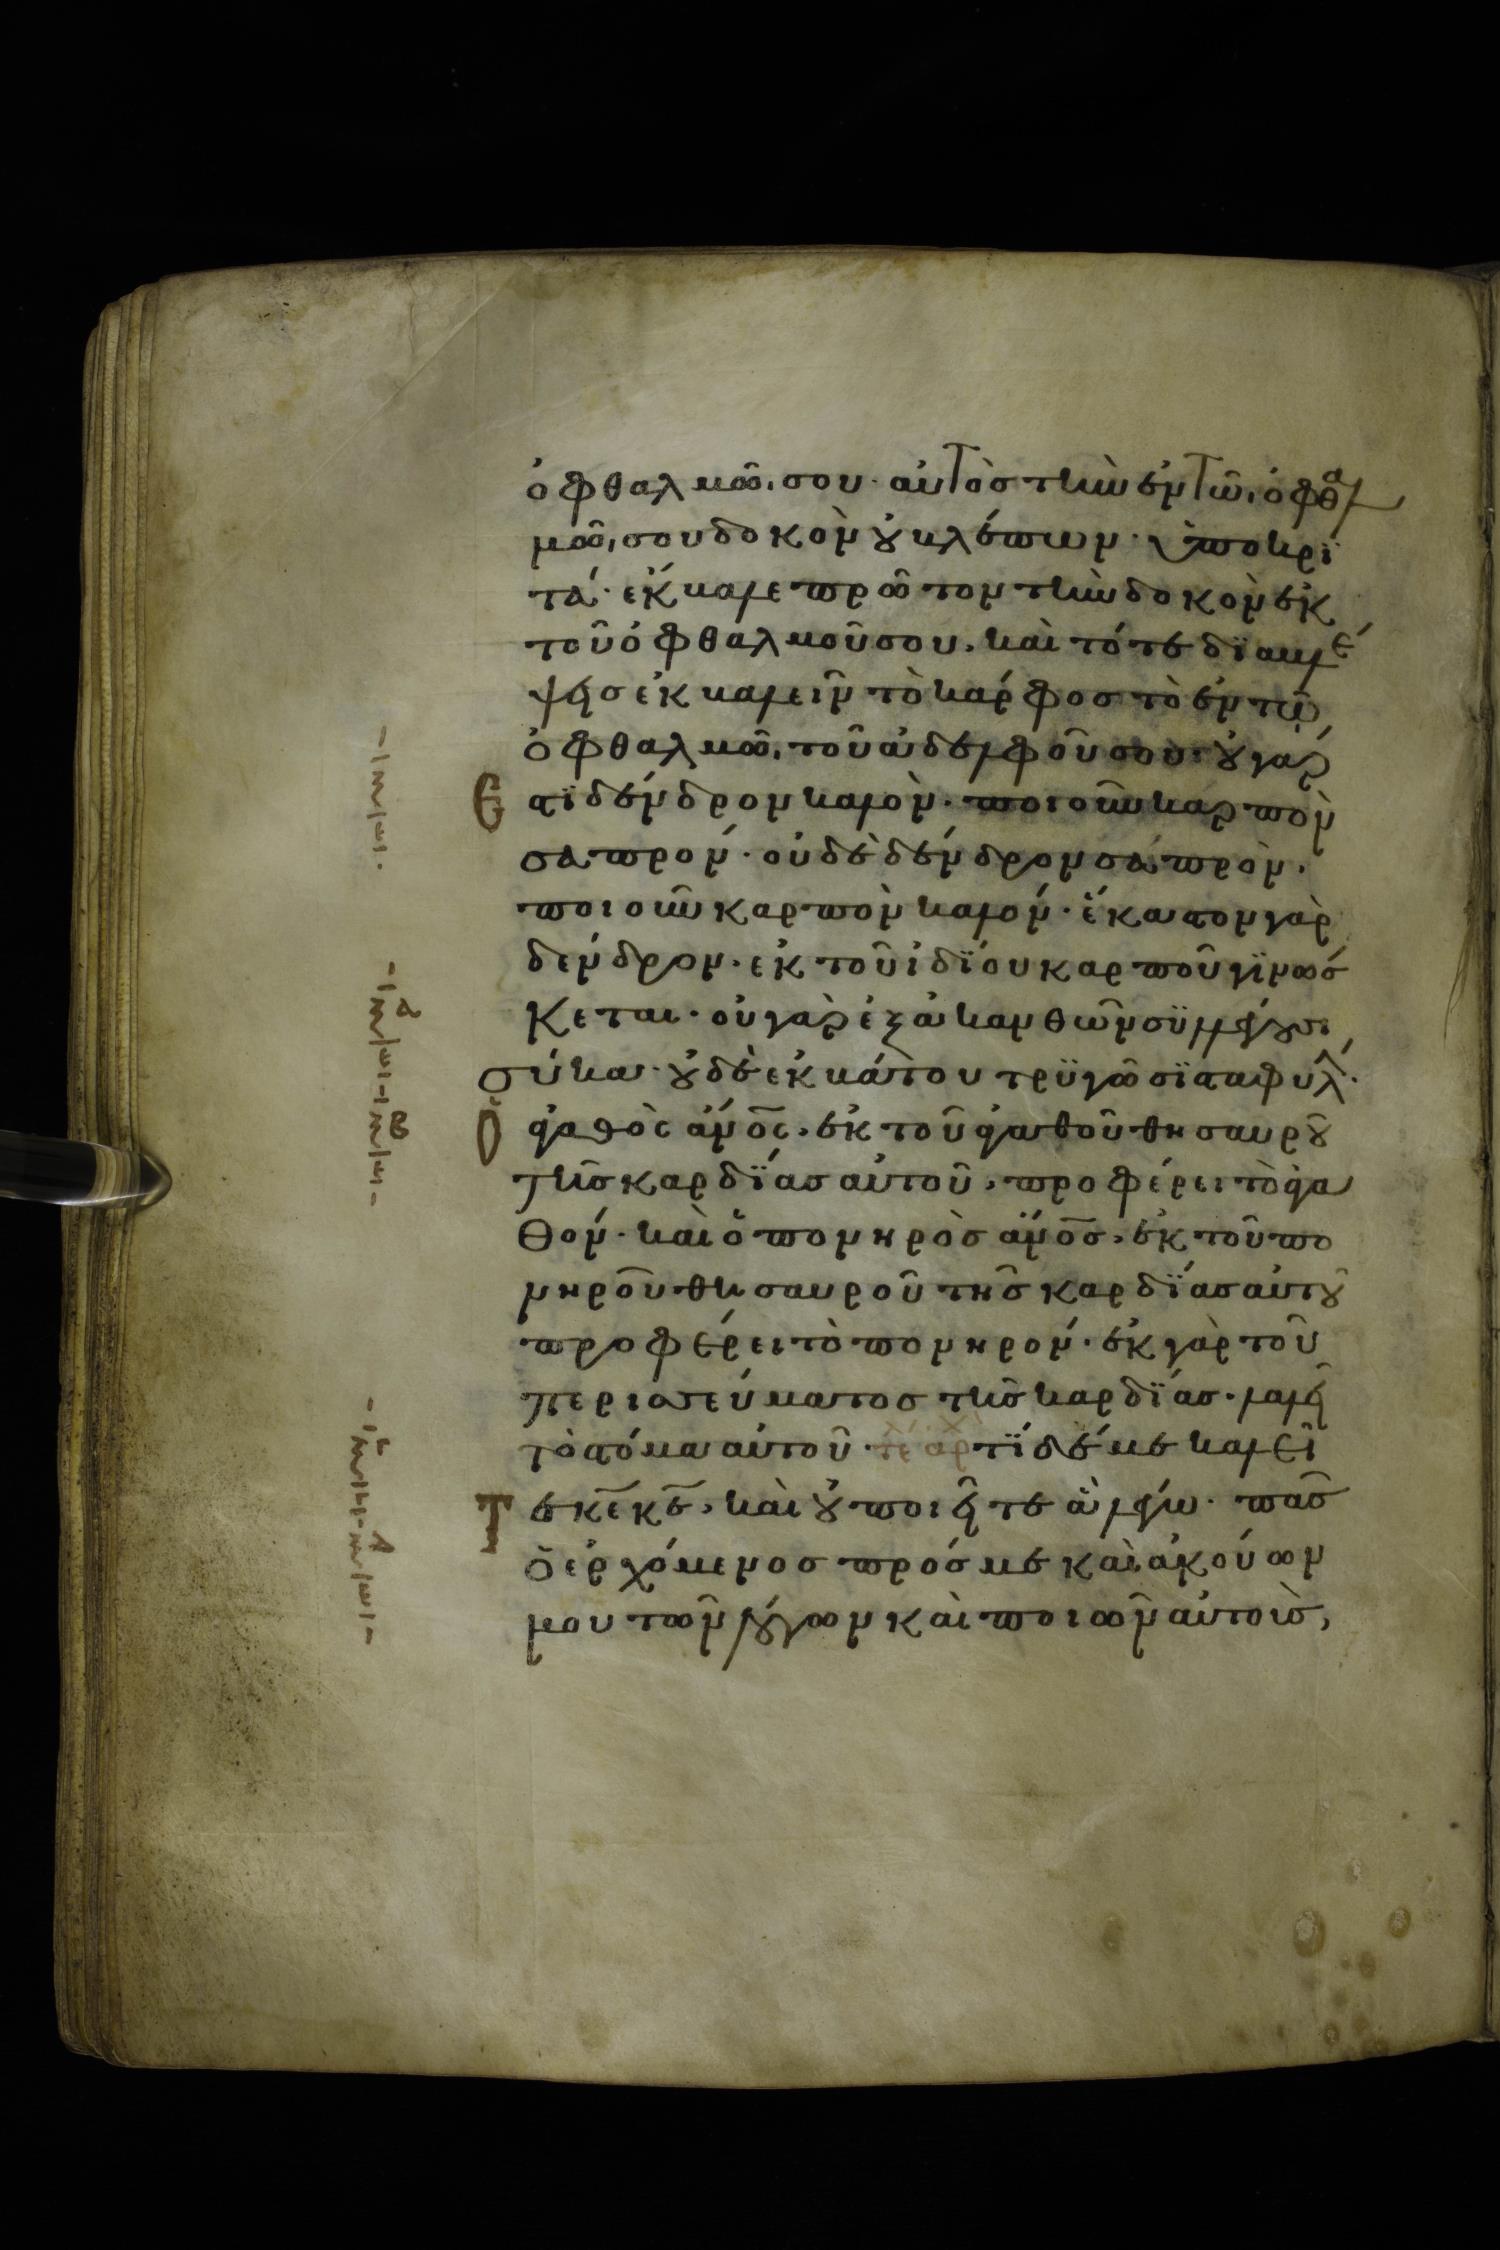 ὀφθαλμῶ, σου· αὐτὸσ τὴν ἐν τῶ, ὀφθαλ
μῶ, σου δοκὸν οὐ βλέπων· ὑποκρϊ
τά· ἔκβαλε πρῶτον τὴν δοκὸν ἐκ
τοῦ ὀφθαλμοῦ σου, καὶ τότε δϊαβλέ
ψησ ἐκβαλεῖν τὸ κάρφοσ τὸ ἐν τῶ
ὀφθαλμῶ, τοῦ ἀδελφοῦ σου· οὐ γάρ
Εστϊ δένδρον καλὸν· ποιοῦν καρπὸν
σαπρόν· οὐδὲ δένδρον σαπρὸν,
ποιοῦν καρπὸν καλόν· ἕκαστον γὰρ
δένδρον, ἐκ τοῦ ἰδΐου καρποῦ γϊνώσ
κεται· οὐ γὰρ ἐξ ἀκανθῶν συλλέγουσι
σύκα· οὐδὲ ἐκ βάτου τρϋγῶσϊ σταφυλ́·
Ὁ ἀγαθὸς ἄν̅ο̅ς, ἐκ τοῦ ἀγαθοῦ θησαυροῦ
τῆσ καρδΐασ αὐτοῦ, προφέρει τὸ ἀγα
θόν· καὶ ὁ πονηρὸσ ἄν̅ο̅σ, ἐκ τοῦ πο
νηροῦ θησαυροῦ τῆσ καρδΐασ αὐτοῦ
προφέρει τὸ πονηρόν· ἐκ γὰρ τοῦ
περισσεύματοσ τῆσ καρδΐασ, λαλεῖ
τὸ στόμα αὐτοῦ· τέ ἀρχ τΐ δέ με καλεῖ
Τε κ̅ε̅ κ̅ε̅, καὶ οὐ ποιεῖτε ἃ λέγω· πᾶσ
ὁ ἐρχόμενοσ πρόσ με καὶ ἀκούων
μου τῶν λόγων καὶ ποιῶν αὐτοὺσ,